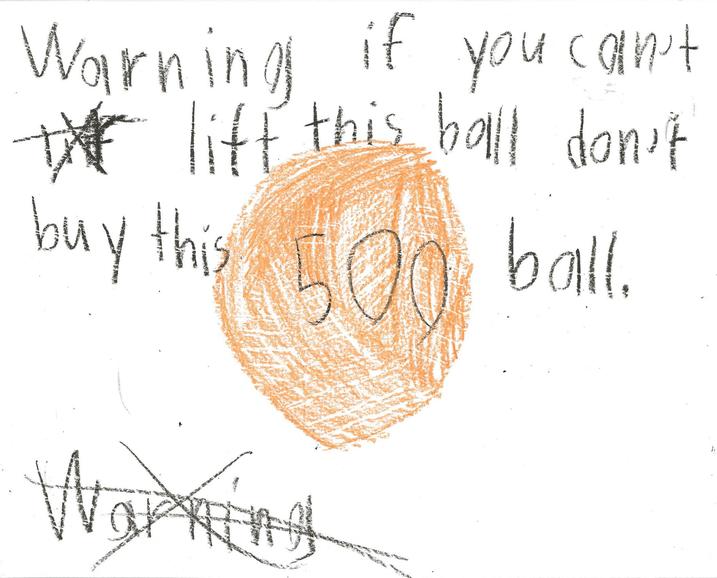 Warning if you can't
lift this ball don't
buy this 500 ball.
Warning